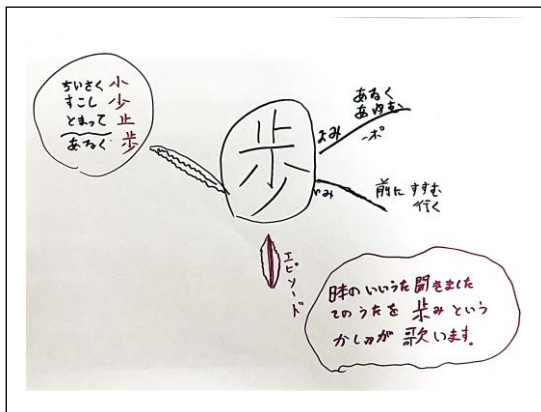 ちいさく 小
すこし 少
とまって 止
あるく 歩
歩
よみ
あるく
あゆむ
ーポ
いみ
前に すすむ
行く
エピソード
日本のいいうた 聞きました
このうたを 歩みという
かしゅが 歌います。